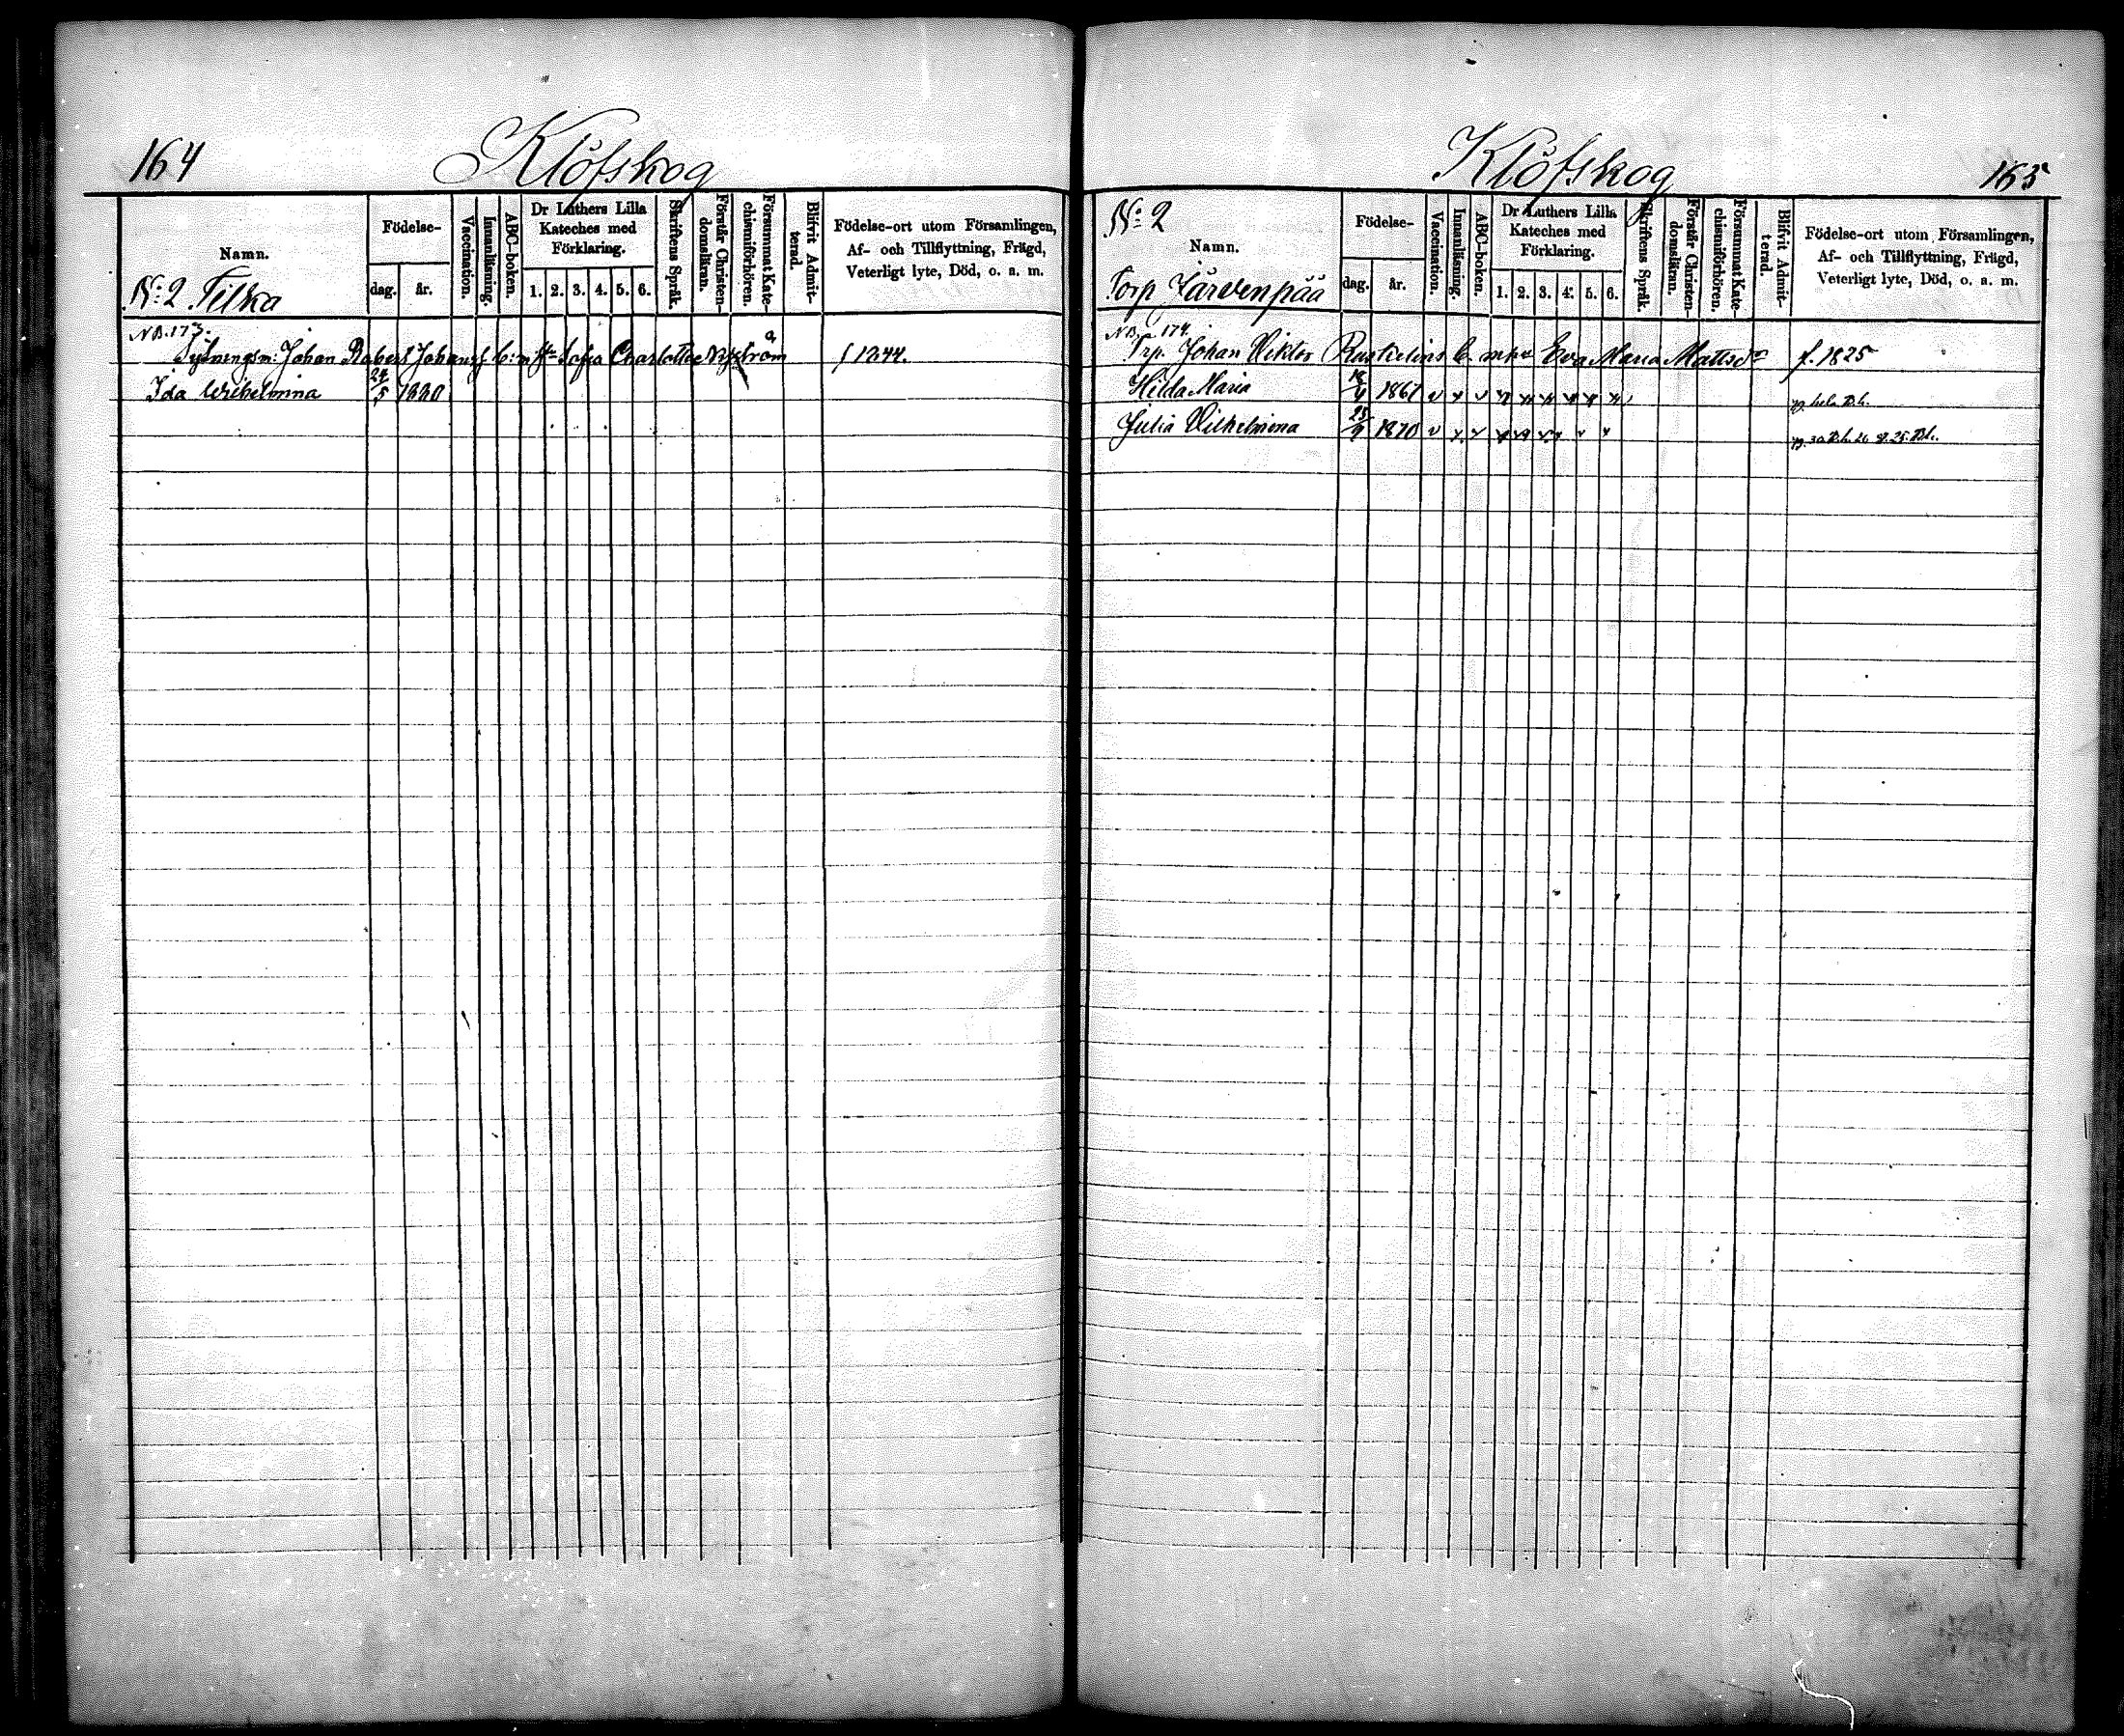 164 Klöfskog
Namn.
Födelse-
dag. år.
Vaccination.
Innanläsning.
ABC-boken.
Dr Luthers Lilla
Kateches med
Förklaring.
1. 2. 3. 4. 5. 6.
Skriftens Språk.
Förstår Christen-
domsläran.
Försummat Kate-
chismiförhören.
Blifvit Admit-
terad.
Födelse-ort utom Församlingen,
Af- och Tillflyttning, Frägd,
Veterligt lyte, Död, o. a. m.
N:o 2 Tilka
NB. 173.
Sytningsm: Johan Robert Johansf. Sofia Charlotta Nyström f 1844.
Ida Wilhelmina 24/5 1880
Klöfskog 165
N:o 2
Namn.
Födelse-
dag. år.
Vaccination.
Innanläsning.
ABC-boken.
Dr Luthers Lilla
Kateches med
Förklaring.
1. 2. 3. 4. 5. 6.
Skriftens Språk.
Förstår Christen-
domsläran.
Försummat Kate-
chismiförhören.
Blifvit Admit-
terad.
Födelse-ort utom Församlingen,
Af- och Tillflyttning, Frägd,
Veterligt lyte, Död, o. a. m.
Torp Järvenpää
NB. 174.
Trp. Johan Viktor Rustelins Eva Maria Mattsdr f. 1825
Hilda Maria 1867
Julia Vilhelmina 25/9 1870